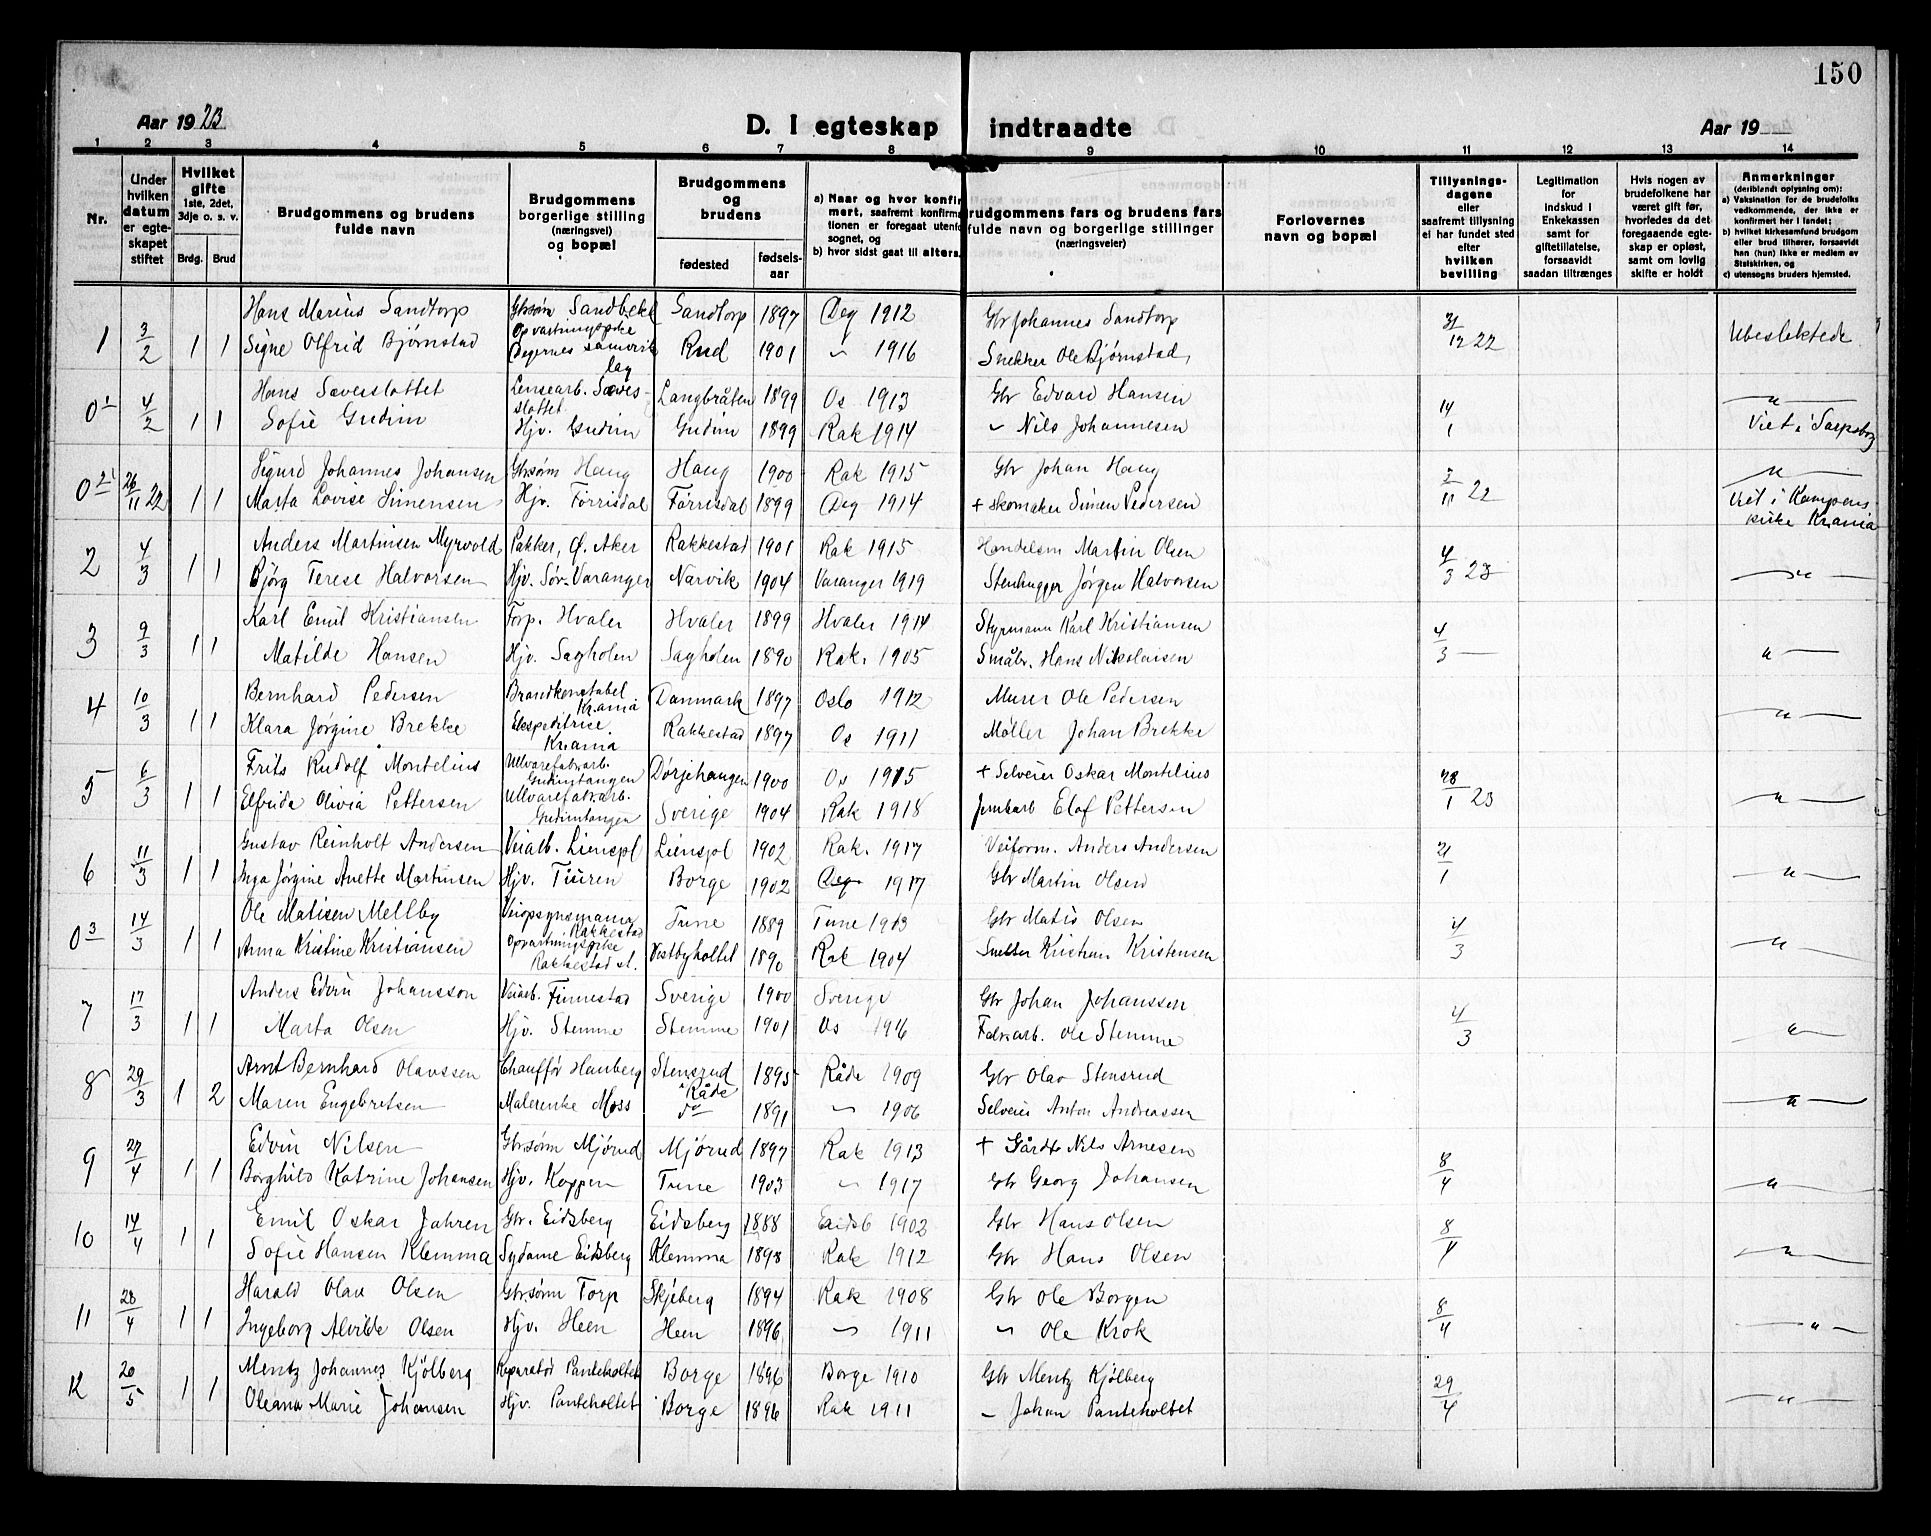 150
Aar 1923
D. I egteskap indtraadte
Aar 19
1 2 3 4 5 6 7 8 9 10 11 12 13 14
Nr.
Under hvilken datum er egteskapet stiftet
Hvilket gifte 1ste, 2det, 3dje o. s. v.
Brdg. Brud
Brudgommens og brudens fulde navn
Brudgommens borgerlige stilling (næringsvei) og bopæl
Brudgommens og brudens
fødested
fødsels-aar
a) Naar og hvor konfirmert, saafremt konfirmationen er foregaat utenfor sognet, og
b) hvor sidst gaat til alters.
rudgommens fars og brudens fars fulde navn og borgerlige stillinger (næringsveier)
Forlovernes navn og bopæl
Tillysningsdagene eller saafremt tillysning ei har fundet sted efter hvilken bevilling
Legitimation for indskud i Enkekassen samt for giftetillatelse, forsaavidt saadan tiltrænges
Hvis nogen av brudefolkene har været gift før, hvorledes da det foregaaende egteskap er opløst, samt om lovlig skifte er holdt
Anmerkninger (deriblandt oplysning om):
a) Vaksination for de brudefolks vedkommende, der ikke er konfirmert her i landet;
b) hvilket kirkesamfund brudgom eller brud tilhører, forsaavidt han (hun) ikke er medlem av Statskirken, og
c) utensogns bruders hjemsted.
1 3/2 1 1 Hans Marius Sandtorp Gbrsøn Sandbekk Sandtorp 1897 Deg 1912 Gbr Johannes Sandtorp 31/12 22 Ubeslektede
Signe Olfrid Bjørnstad Opvartningspike Degernes samvirkelag Rud 1901 " 1916 Snekker Ole Bjørnstad
0 1 4/2 1 1 Hans Sæveslottet Lensearb. Sæveslottet Langbråten 1899 Os 1913 Gbr Edvard Hansen 14/1 "
Sofie Gudim Hjv. Gudim Gudim 1899 Rak 1914 " Nils Johannesen Viet i Sarpsborg
0 2 26/11 22 1 1 Sigurd Johannes Johansen Gbrsøn Haug Haug 1900 Rak 1915 Gbr Johan Haug 2/11 22 "
Marta Lovise Simensen Hjv. Førrisdal Førrisdal 1899 Deg 1914 + Skomaker Simen Pedersen Viet i Kampens kirke Krania
2 4/3 1 1 Anders Martinsen Myrvold Pakker, Ø. Aker Rakkestad 1901 Rak 1915 Handelsm Martin Olsen 4/3 23 "
Bjørg Terese Halvorsen Hjv. Sør-Varanger Narvik 1904 Varanger 1919 Stenhugger Jørgen Halvorsen
3 9/3 1 1 Karl Emil Kristiansen Torp. Hvaler Hvaler 1899 Hvaler 1914 Styrmann Karl Kristiansen 4/3 — "
Matilde Hansen Hjv. Sagholen Sagholen 1890 Rak. 1905 Småbr. Hans Nikolaisen
4 10/3 1 1 Bernhard Pedersen Brandkonstabel Krania Danmark 1897 Oslo 1912 Murer Ole Pedersen "
Klara Jørgine Brekke Ekspeditrise Krania Rakkestad 1897 Os 1911 Møller Johan Brekke
5 6/3 1 1 Frits Rudolf Montelius Ullvarefabrarb. Gudimtangen Dørjehaugen 1900 Os 1915 + Selveier Oskar Montelius 28/1 23 "
Elfrida Olivia Pettersen Ullvarefabrarb. Gudimtangen Sverige 1904 Rak 1918 Jernbarb Elof Pettersen
6 11/3 1 1 Gustav Reinholt Andersen Veiarb. Lienspl Lienspl 1902 Rak. 1917 Veiform. Anders Andersen 21/1 "
Inga Jørgine Anette Martinsen Hjv. Tiuren Borge 1902 Deg 1917 Gbr Martin Olsen
0 3 14/3 1 1 Ole Matisen Mellby Veiopsynsmann Rakkestad Tune 1889 Tune 1903 Gbr Matis Olsen 4/3 "
Anna Kristine Kristiansen Opvartningspike Rakkestad st. Vestbyholtet 1890 Rak 1904 Kristian Kristensen
7 17/3 1 1 Anders Edvin Johansson Veiarb. Finnestad Sverige 1900 Sverige Gbr Johan Johanssen 4/3 "
Marta Olsen Hjv. Stemme Stemme 1901 Os 1916 Fabrarb. Ole Stemme
8 29/3 1 2 Arnt Bernhard Olavssen Chauffør Hauberg Stensrud i Råde 1895 Råde 1909 Gbr Olav Stensrud "
Maren Engebretsen Malerenke Moss do 1891 " 1906 Selveier Anton Andreassen
9 27/4 1 1 Edvin Nilsen Gbrsønn Mjørud Mjørud 1897 Rak 1913 + Gårdbr Nils Arnesen 8/4 "
Borghild Katrine Johansen Hjv. Koppen Tune 1903 " 1917 Gbr Georg Johansen
10 14/4 1 1 Emil Oskar Jahren Gbr. Eidsberg Eidsberg 1888 Eidsb 1902 Gbr Hans Olsen 8/4 "
Sofie Hansen Klemma Sydame Eidsberg Klemma 1898 Rak 1912 Gbr Hans Olsen
11 28/4 1 1 Harald Olav Olsen Gbrsønn Torp Skjeberg 1894 Rak 1908 Gbr Ole Borgen 8/4 "
Ingeborg Alvilde Olsen Hjv. Heen Heen 1896 " 1911 " Ole Krok
12 20/5 1 1 Mentz Johannes Kjölberg Reparatør Panteholtet Borge 1896 Borge 1910 Gbr Mentz Kjølberg 29/4 "
Oleana Marie Johansen Hjv. Panteholtet Borge 1896 Rak 1911 " Johan Panteholtet